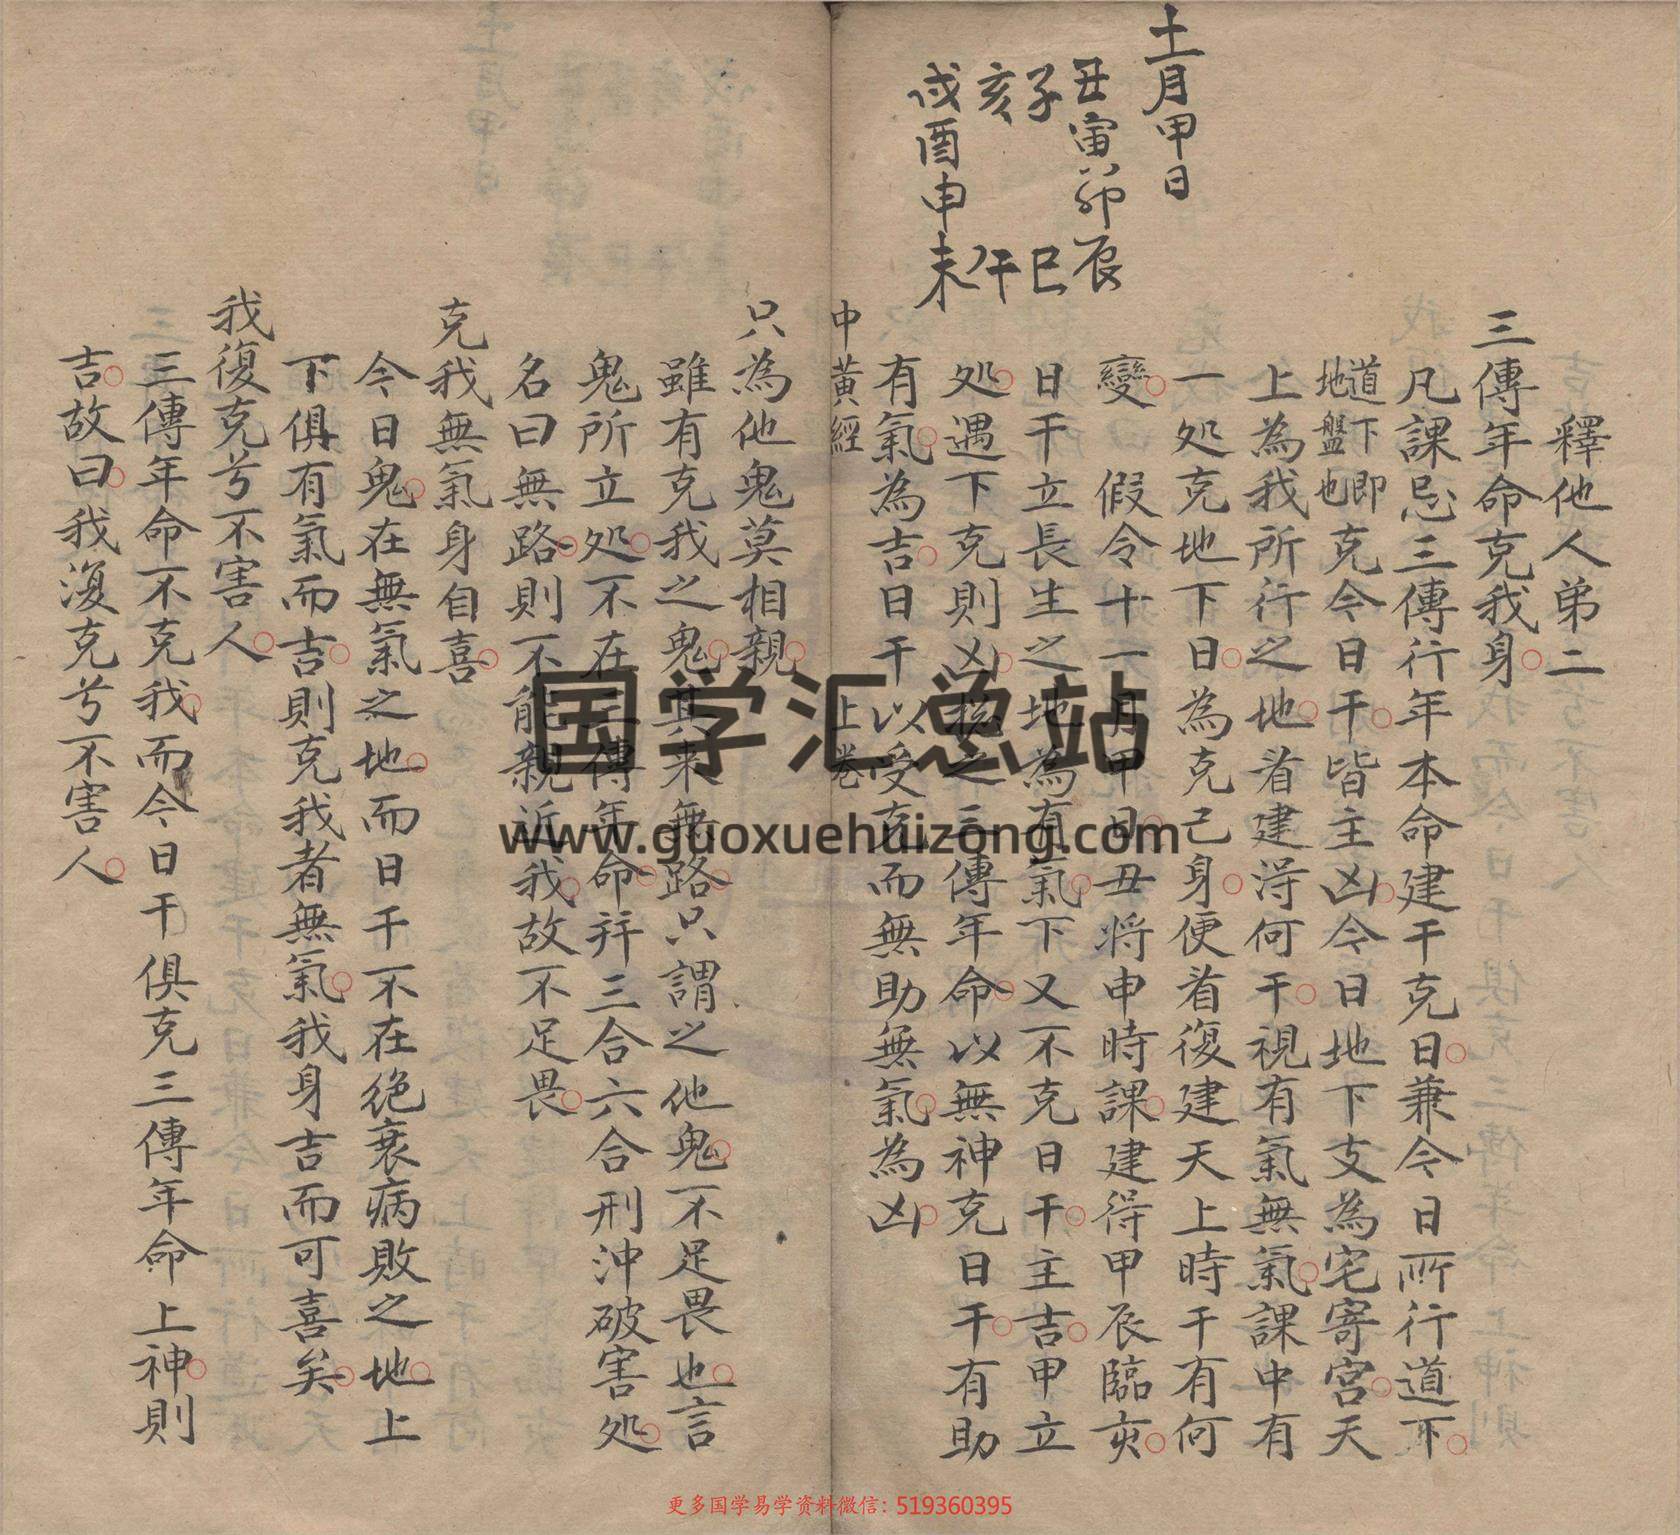 十一月甲日
丑寅卯辰
子　　巳
亥　　午
戌酉申未
釋他人弟二
三傳年命克我身
凡課忌三傳行年本命建干克日兼今日所行道下
道下即地盤也克今日干皆主凶今日地下支為宅寄宮天
上為我所行之地看建得何干視有氣無氣課中有
一処克地下日為克己身便看復建天上時干有何
變　假令十一月甲日丑将申時課建得甲辰臨亥
日干立長生之地為有氣下又不克日干主吉甲立
処遇下克則凶三傳年命以無神克日干有助
有氣為吉日干以受克而無助無氣為凶
中黃經　上卷
只為他鬼莫相親
雖有克我之鬼其來無路只謂之他鬼不足畏也言
鬼所立処不在三傳年命并三合六合刑沖破害処
名曰無路則不能親近我故不足畏
克我無氣身自喜
今日鬼在無氣之地而日干不在絶衰病敗之地上
下俱有氣而吉則克我者無氣我身吉而可喜矣
我復克兮不害人
三傳年命不克我而今日干俱克三傳年命上神則
吉故曰我復克兮不害人
国学汇总站
www.guoxuehuizong.com
更多国学易学资料微信：519360395